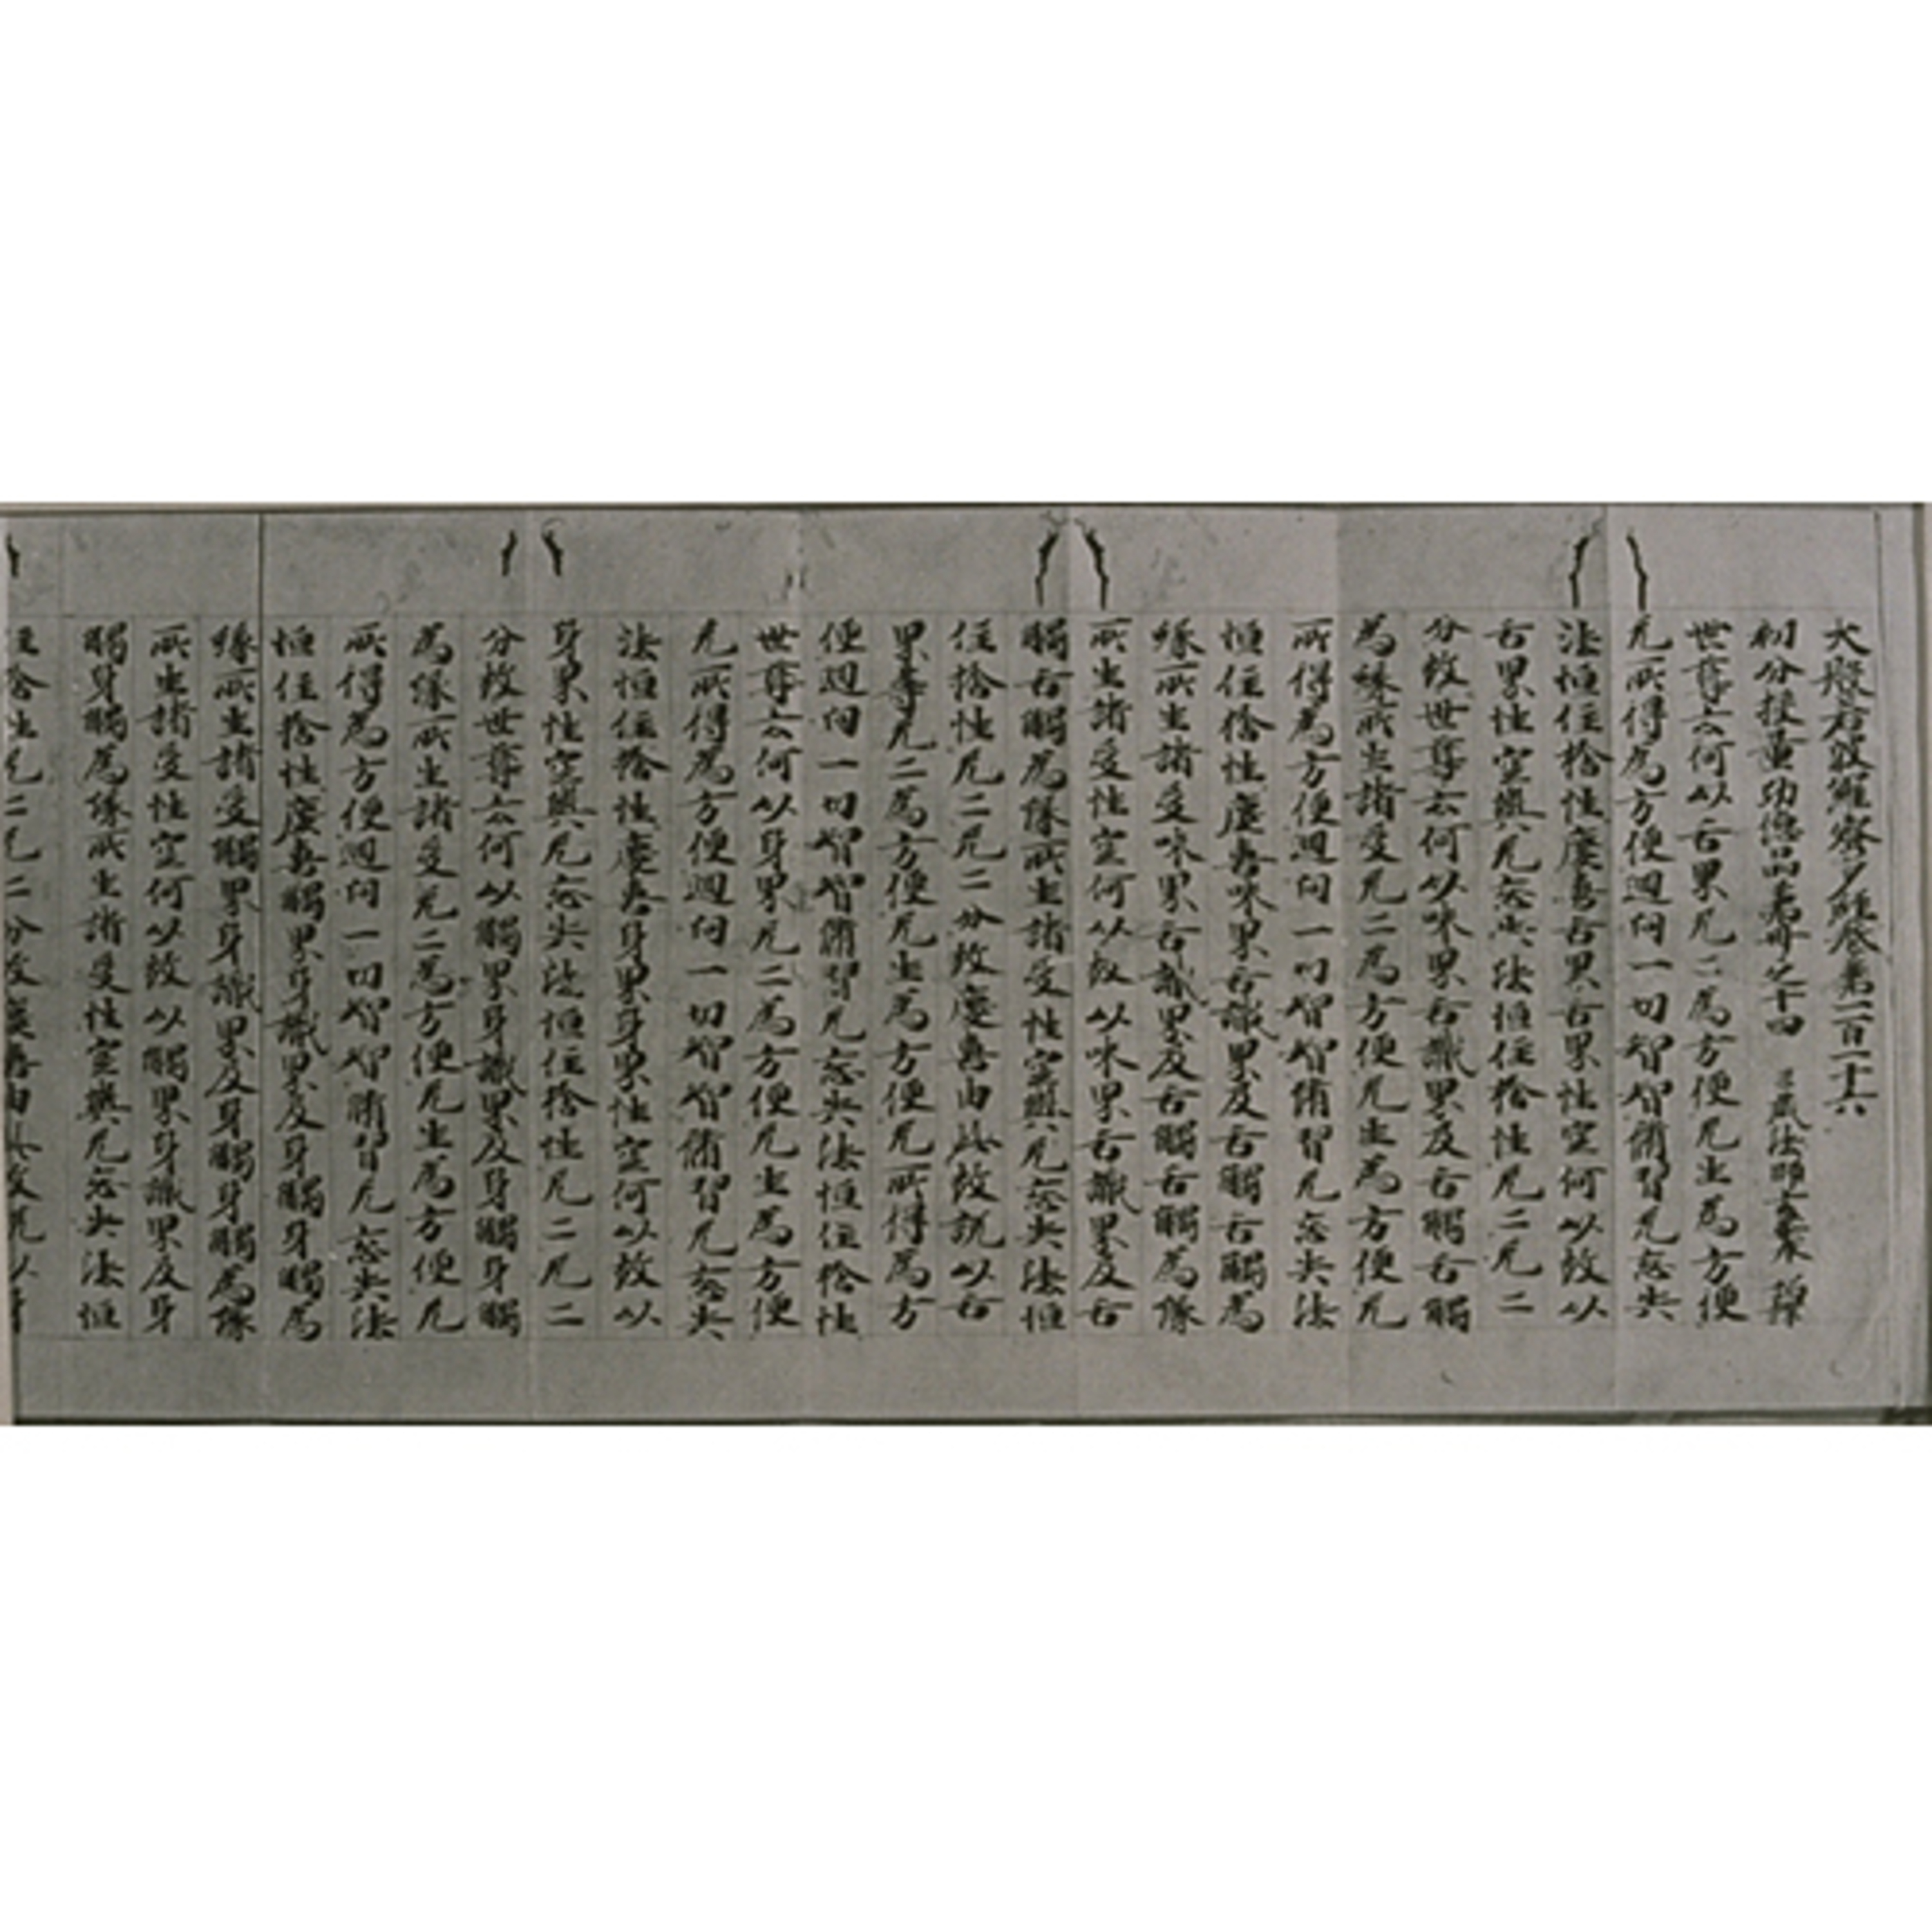 大般若波羅蜜多經卷第一百一十六
初分校量功德品第卅之十四 三藏法師玄奘奉 詔譯
世尊云何以舌界无二為方便无生為方便
无所得為方便迴向一切智智脩習无忘失
法恒住捨性慶喜舌界舌界性空何以故以
舌界性空與无忘失法恒住捨性无二无二
分故世尊云何以味界舌識界及舌觸舌觸
為緣所生諸受无二為方便无生為方便无
所得為方便迴向一切智智脩習无忘失法
恒住捨性慶喜味界舌識界及舌觸舌觸為
緣所生諸受味界舌識界及舌觸舌觸為緣
所生諸受性空何以故以味界舌識界及舌
觸舌觸為緣所生諸受性空與无忘失法恒
住捨性无二无二分故慶喜由此故說以舌
界等无二為方便无生為方便无所得為方
便迴向一切智智脩習无忘失法恒住捨性
世尊云何以身界无二為方便无生為方便
无所得為方便迴向一切智智脩習无忘失
法恒住捨性慶喜身界身界性空何以故以
身界性空與无忘失法恒住捨性无二无二
分故世尊云何以觸界身識界及身觸身觸
為緣所生諸受无二為方便无生為方便无
所得為方便迴向一切智智脩習无忘失法
恒住捨性慶喜觸界身識界及身觸身觸為
緣所生諸受觸界身識界及身觸身觸為緣
所生諸受性空何以故以觸界身識界及身
觸身觸為緣所生諸受性空與无忘失法恒
住捨性无二无二分故慶喜由此故說以身